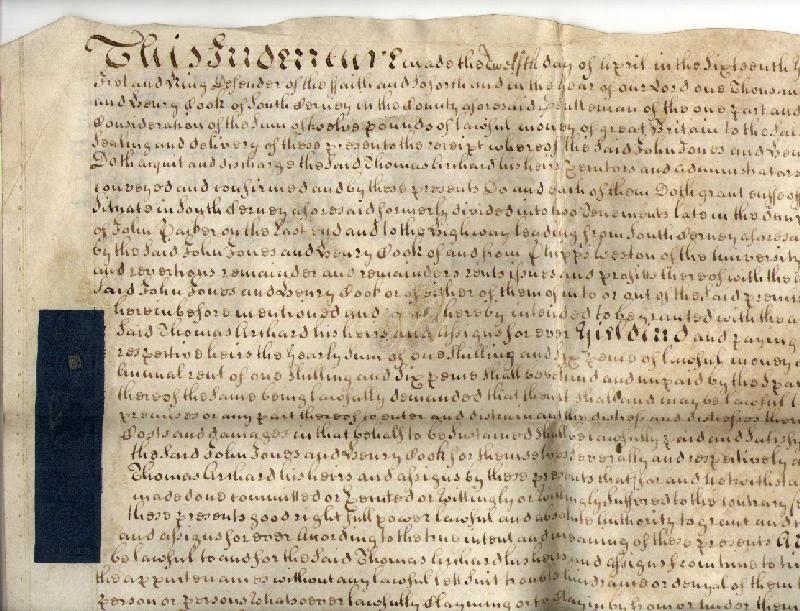 This Indenture made the Twelfth day of April in the Sixteenth
First and King Defender of the Faith and so forth and in the Year of our Lord one Thousan
and Henry Cook of South Cerney in the County aforesaid Gentleman of the one part and
Consideration of the Sum of twelve pounds of lawful money of great Britain to the Sai
Sealing and delivery of these presents the receipt whereof the Said John Jones and Hen
Doth acquit and discharge the Said Thomas Archard his heirs Executors and Administrators
conveyed and confirmed and by these presents Do and each of them Doth grant enffeoff
Situate in South Cerney aforesaid formerly divided into two Tenements late in the
of John on the East end and to the Highway leading from South Cerney aforesa
by the Said John Jones and Henry Cook of and from Weston of the University
and revertions remainder and remainders rents issues and profitts thereof with the
Said John Jones and Henry Cook or of either of them of in to or out of the Said premis
herein before mentioned and hereby intended to be granted with the a
Said Thomas Archard his heirs and assigns for ever Yielding and paying
respective heirs the Yearly Sum of one Shilling and Six pence of lawful money
Annual rent of one Shilling and Six pence Shall be behind and unpaid by the Space
thereof the Same being lawfully demanded that then it Shall and may be lawful
premises or any part thereof to enter and distrain and the distress and distresses there
Costs and damages in that behalf to be Sustained Shall be lawfully paid and Satisfy
the Said John Jones and Henry Cook for themselves Severally and respectively
Thomas Archard his heirs and assigns by these presents that for and notwithsta
made done committed or Executed or wittingly or willingly Suffered to the contrary
these presents good right full power lawful and absolute authority to grant and
and assigns for ever According to the true intent and meaning of these presents
be lawful to and for the Said Thomas Archard his heirs and assigns from time to ti
the appurtenances without any lawful lett Suit trouble hindrance or denyal of them
person or persons Whatsoever lawfully Clayming or to Claym by from or under them